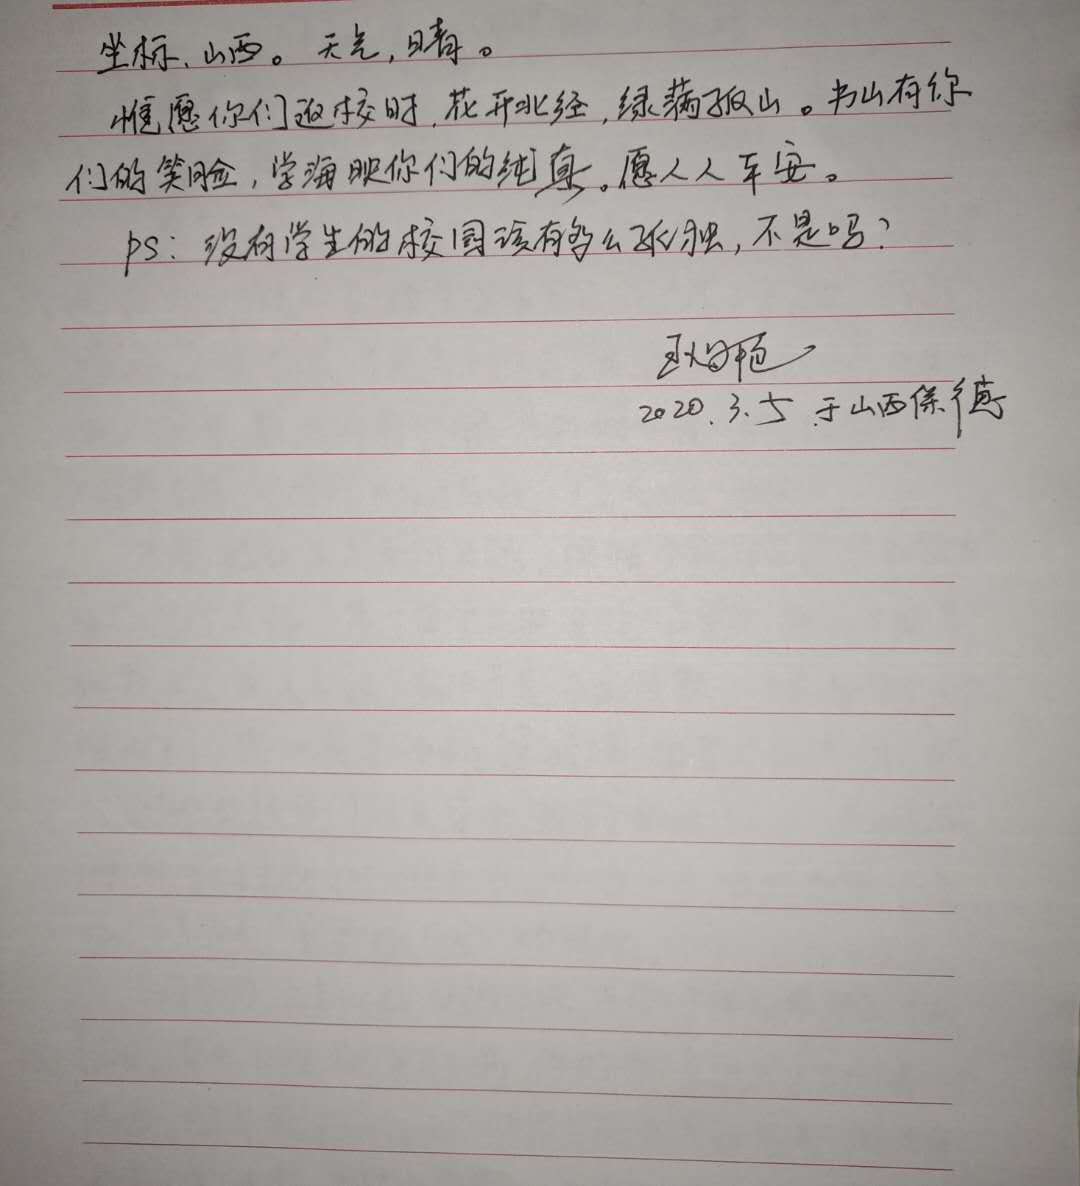 坐标，山西。天气，晴。
惟愿你们返校时，花开北经，绿满孤山。书山有你
们的笑脸，学海映你们的纯真。愿人人平安。
PS：没有学生的校园该有多么孤独，不是吗？
2020.3.5 于山西保德